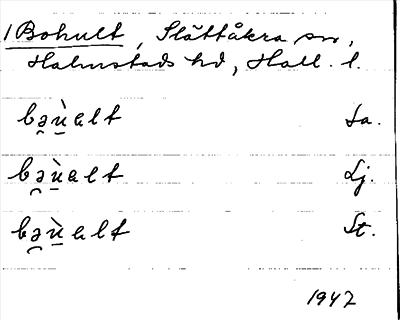 1 Bohult, Slättåkra sn,
Halmstads hd, Hall. l.
bə̯ù̱ɐlt Sa.
bə̯ù̱ɐlt Lj.
bə̯ù̱ɐlt St.
1942